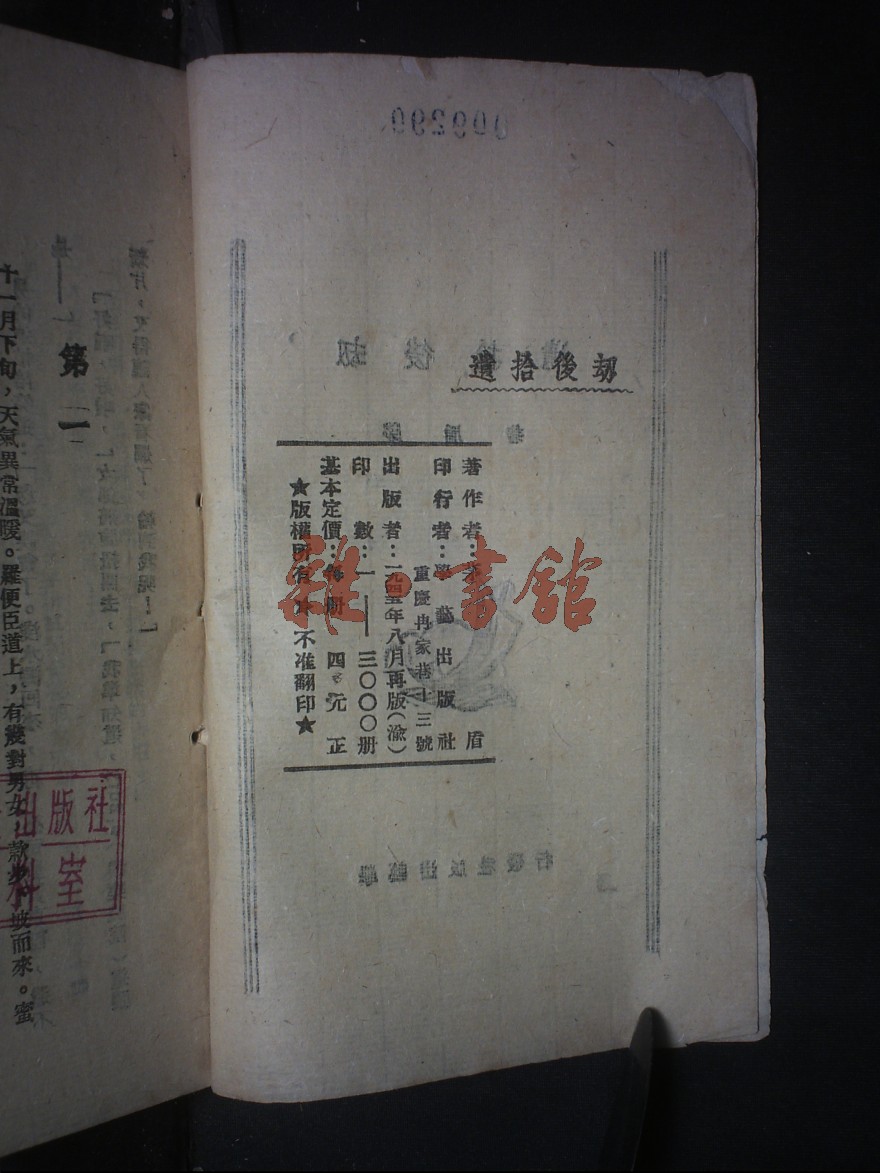 劫後拾遺
著作者：茅盾
印行者：學藝出版社
重慶冉家巷十三號
出版者：一九四五年八月再版（渝）
印數：一——三〇〇〇册
基本定價：每册四元正
★版權所有 不准翻印★
雜書館
000290
第一
十一月下旬，天氣異常溫暖。羅便臣道上，有幾對男女，款步下坡而來。蜜
出版社
室